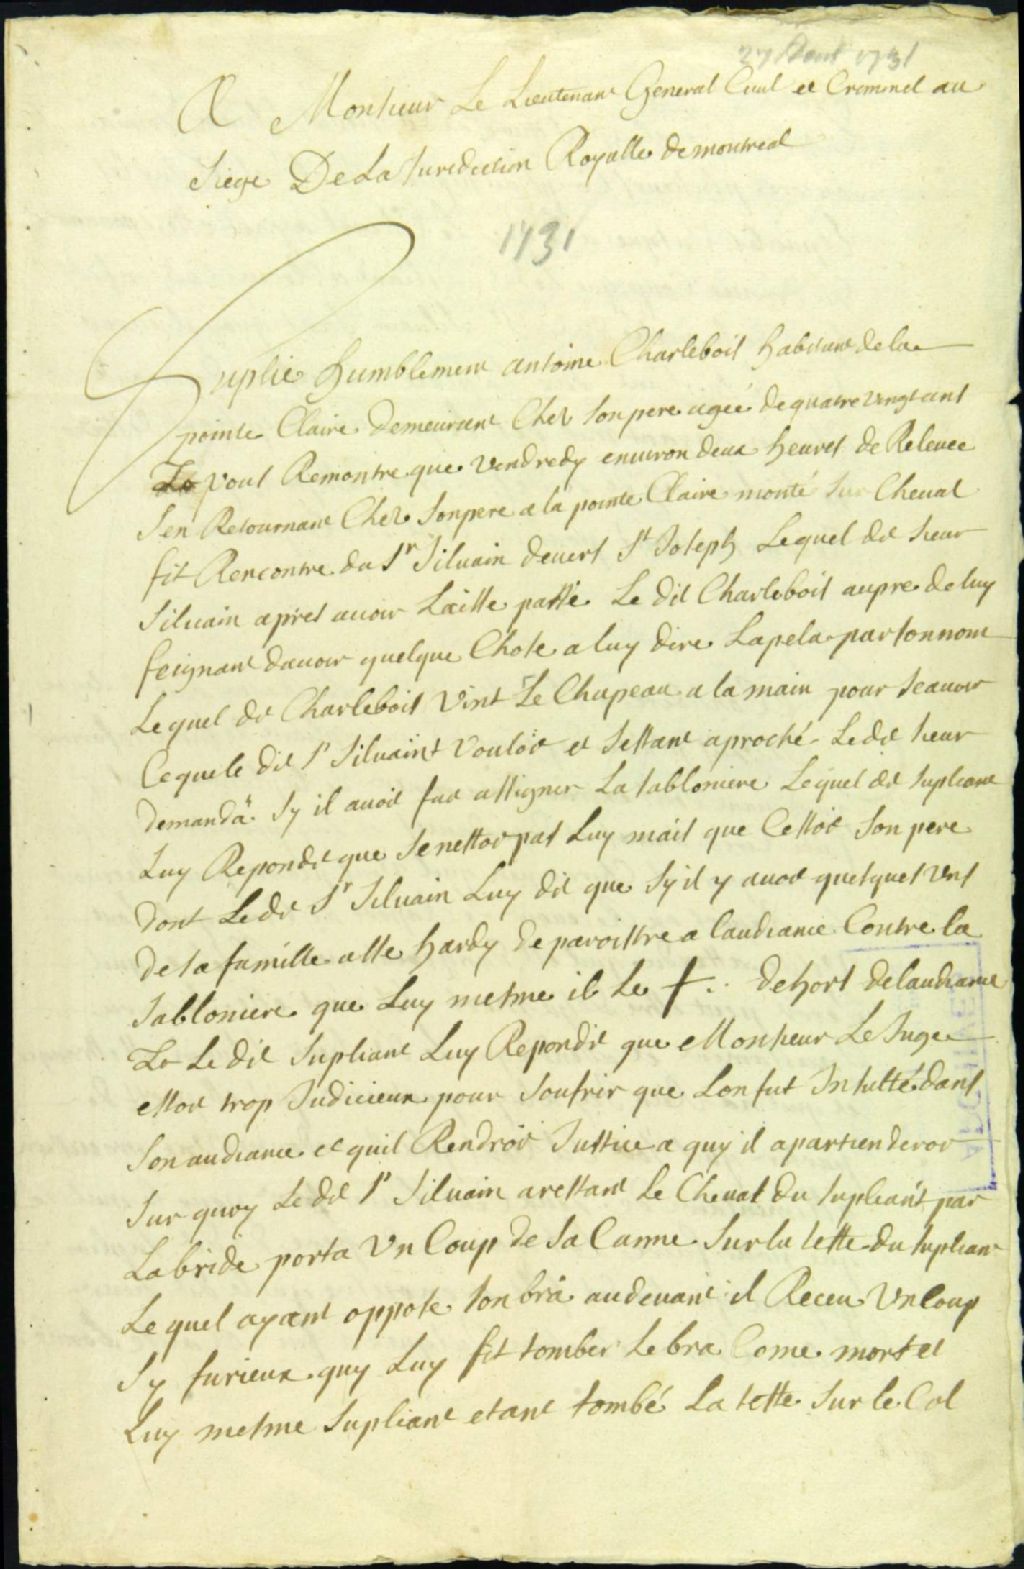 27 Aout 1731
A Monsieur Le Lieutenant General Civil et Criminel au
Siege De La Jurediction Royalle de montreal
1731
Suplie humblement antoine Charlebois habitant de la
pointe Claire demeurant Chez son pere ageé de quatre vingt ans
Et vous Remontre que vendredy environ deux heures de Relevee
s'en Retournant Chez son pere a la pointe Claire monté sur Cheval
fit Rencontre du Sr Silvain devers St Joseph Lequel dit sieur
Silvain apres avoir Laisse passé Le dit Charlebois aupre de luy
feignant davoir quelque Chose a luy dire Lapela par son nom
Lequel dit Charlebois Vint Le Chapeau a la main pour scavoir
Ce que le dit Sr Silvaint vouloit et sestant aproché Le dit sieur
demanda Sy il avoit fait assigner La sabloniere Lequel dit supliant
Luy Repondit que se nestoit pas Luy mais que Cestoit son pere
dont Le dit Sr Silvain Luy dit que sy il y avoit quelques uns
de sa famille asse hardy de paroistre a laudiance Contre la
Sabloniere que Luy mesme il Le f.. dehors de laudiance
Et Le dit supliant Luy Repondit que Monsieur Le Juge
estoit trop Judicieux pour soufrir que Lon fut Insulté dans
son audiance et quil Rendroit Justice a quy il apartienderoit
Sur quoy Le dit Sr Silvain arestant Le Cheval du supliant par
La bride porta Un Coup de Sa Canne Sur la teste du supliant
Lequel ayant oppose son bra audevant il Receu Un Coup
Sy furieux quy Luy fit tomber Le bra Come mort et
Luy mesme supliant etant tombé La teste Sur le Col